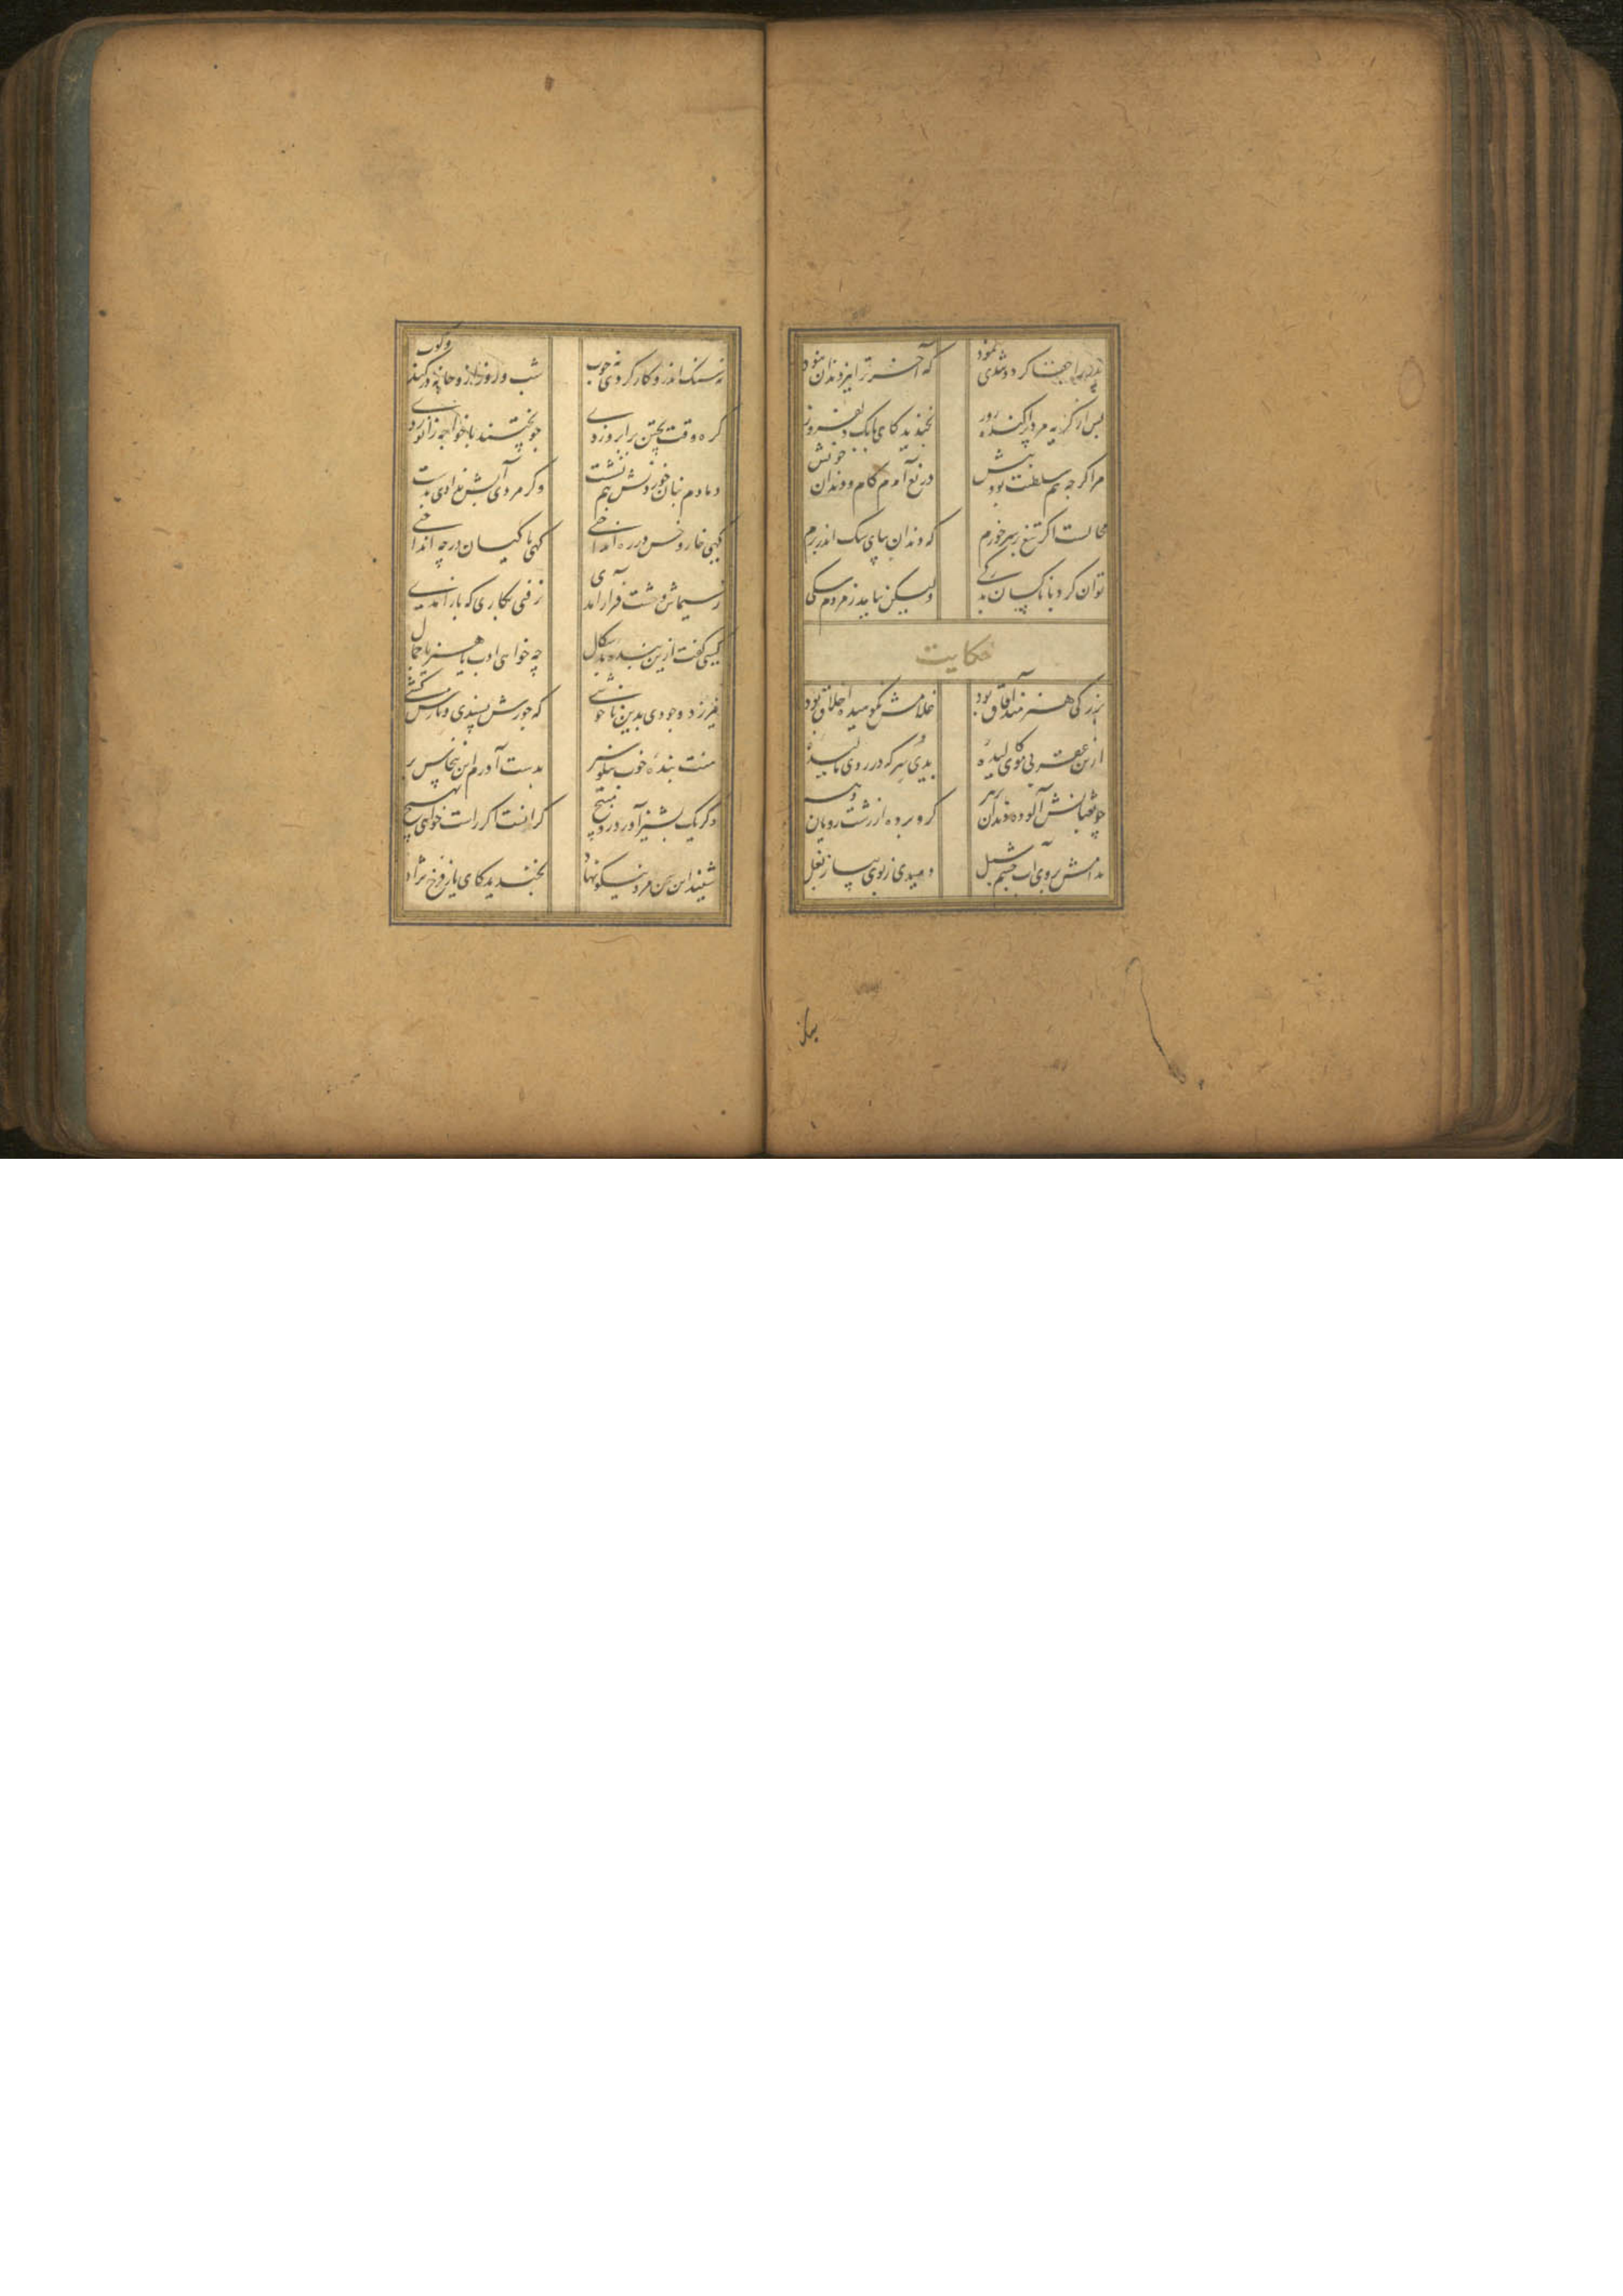 پدر را جفا کرد و تندی نمود که آخر ترا نیز دندان نبود
پس از گریه مرد پراکنده روز بخندید کای بابک دلفروز
مرا کرچه هم سلطنت بود و بیش دریغ آمدم کام و دندان خویش
محالست اکر تیغ بر سر خورم که دندان بپای سک اندر برم
توان کرد با ناکسان بدرکی ولیکن نیاید ز مردم سکی
حکایت
بزرکی هنرمند آفاق بود غلامش نکوهیده اخلاق بود
ازین موی کالیدهٔ بدی سرکه در روی مالیدهٔ
چو ثعبانش آلوده دندان بزهر کرو برده از زشت رویان شهر
مدامش بروی آب چشم سبل دویدی ز بوی پیاز بغل
نه سنک اندرو کار کردی نه چوب شب و روز ازو خانه در کند و کوب
کره وقت پختن بر ابرو زدی چو پختند با خواجه زانو زدی
دمادم بنان خوردنش هم نشست وکر مردی آبش ندادی بدست
کهی خار و خس در ره انداختی کهی ماکیان در چه انداختی
ز سیماش وحشت فراز آمدی نرفتی بکاری که باز آمدی
کسی کفت ازین بنده بد سکال چه خواهی ادب یا هنر یا جمال
نیرزد وجودی بدین ناخوشی که جورش پسندی و بارش کشی
منت بنده خوب نیکو سیر بدست آورم این بنخاس بر
وکر یک پشیز آورد مپیچ کرانست اکر راست خواهی بهیچ
شنید این سخن مرد نیکو نهاد بخندید کای یار فرخ نژاد